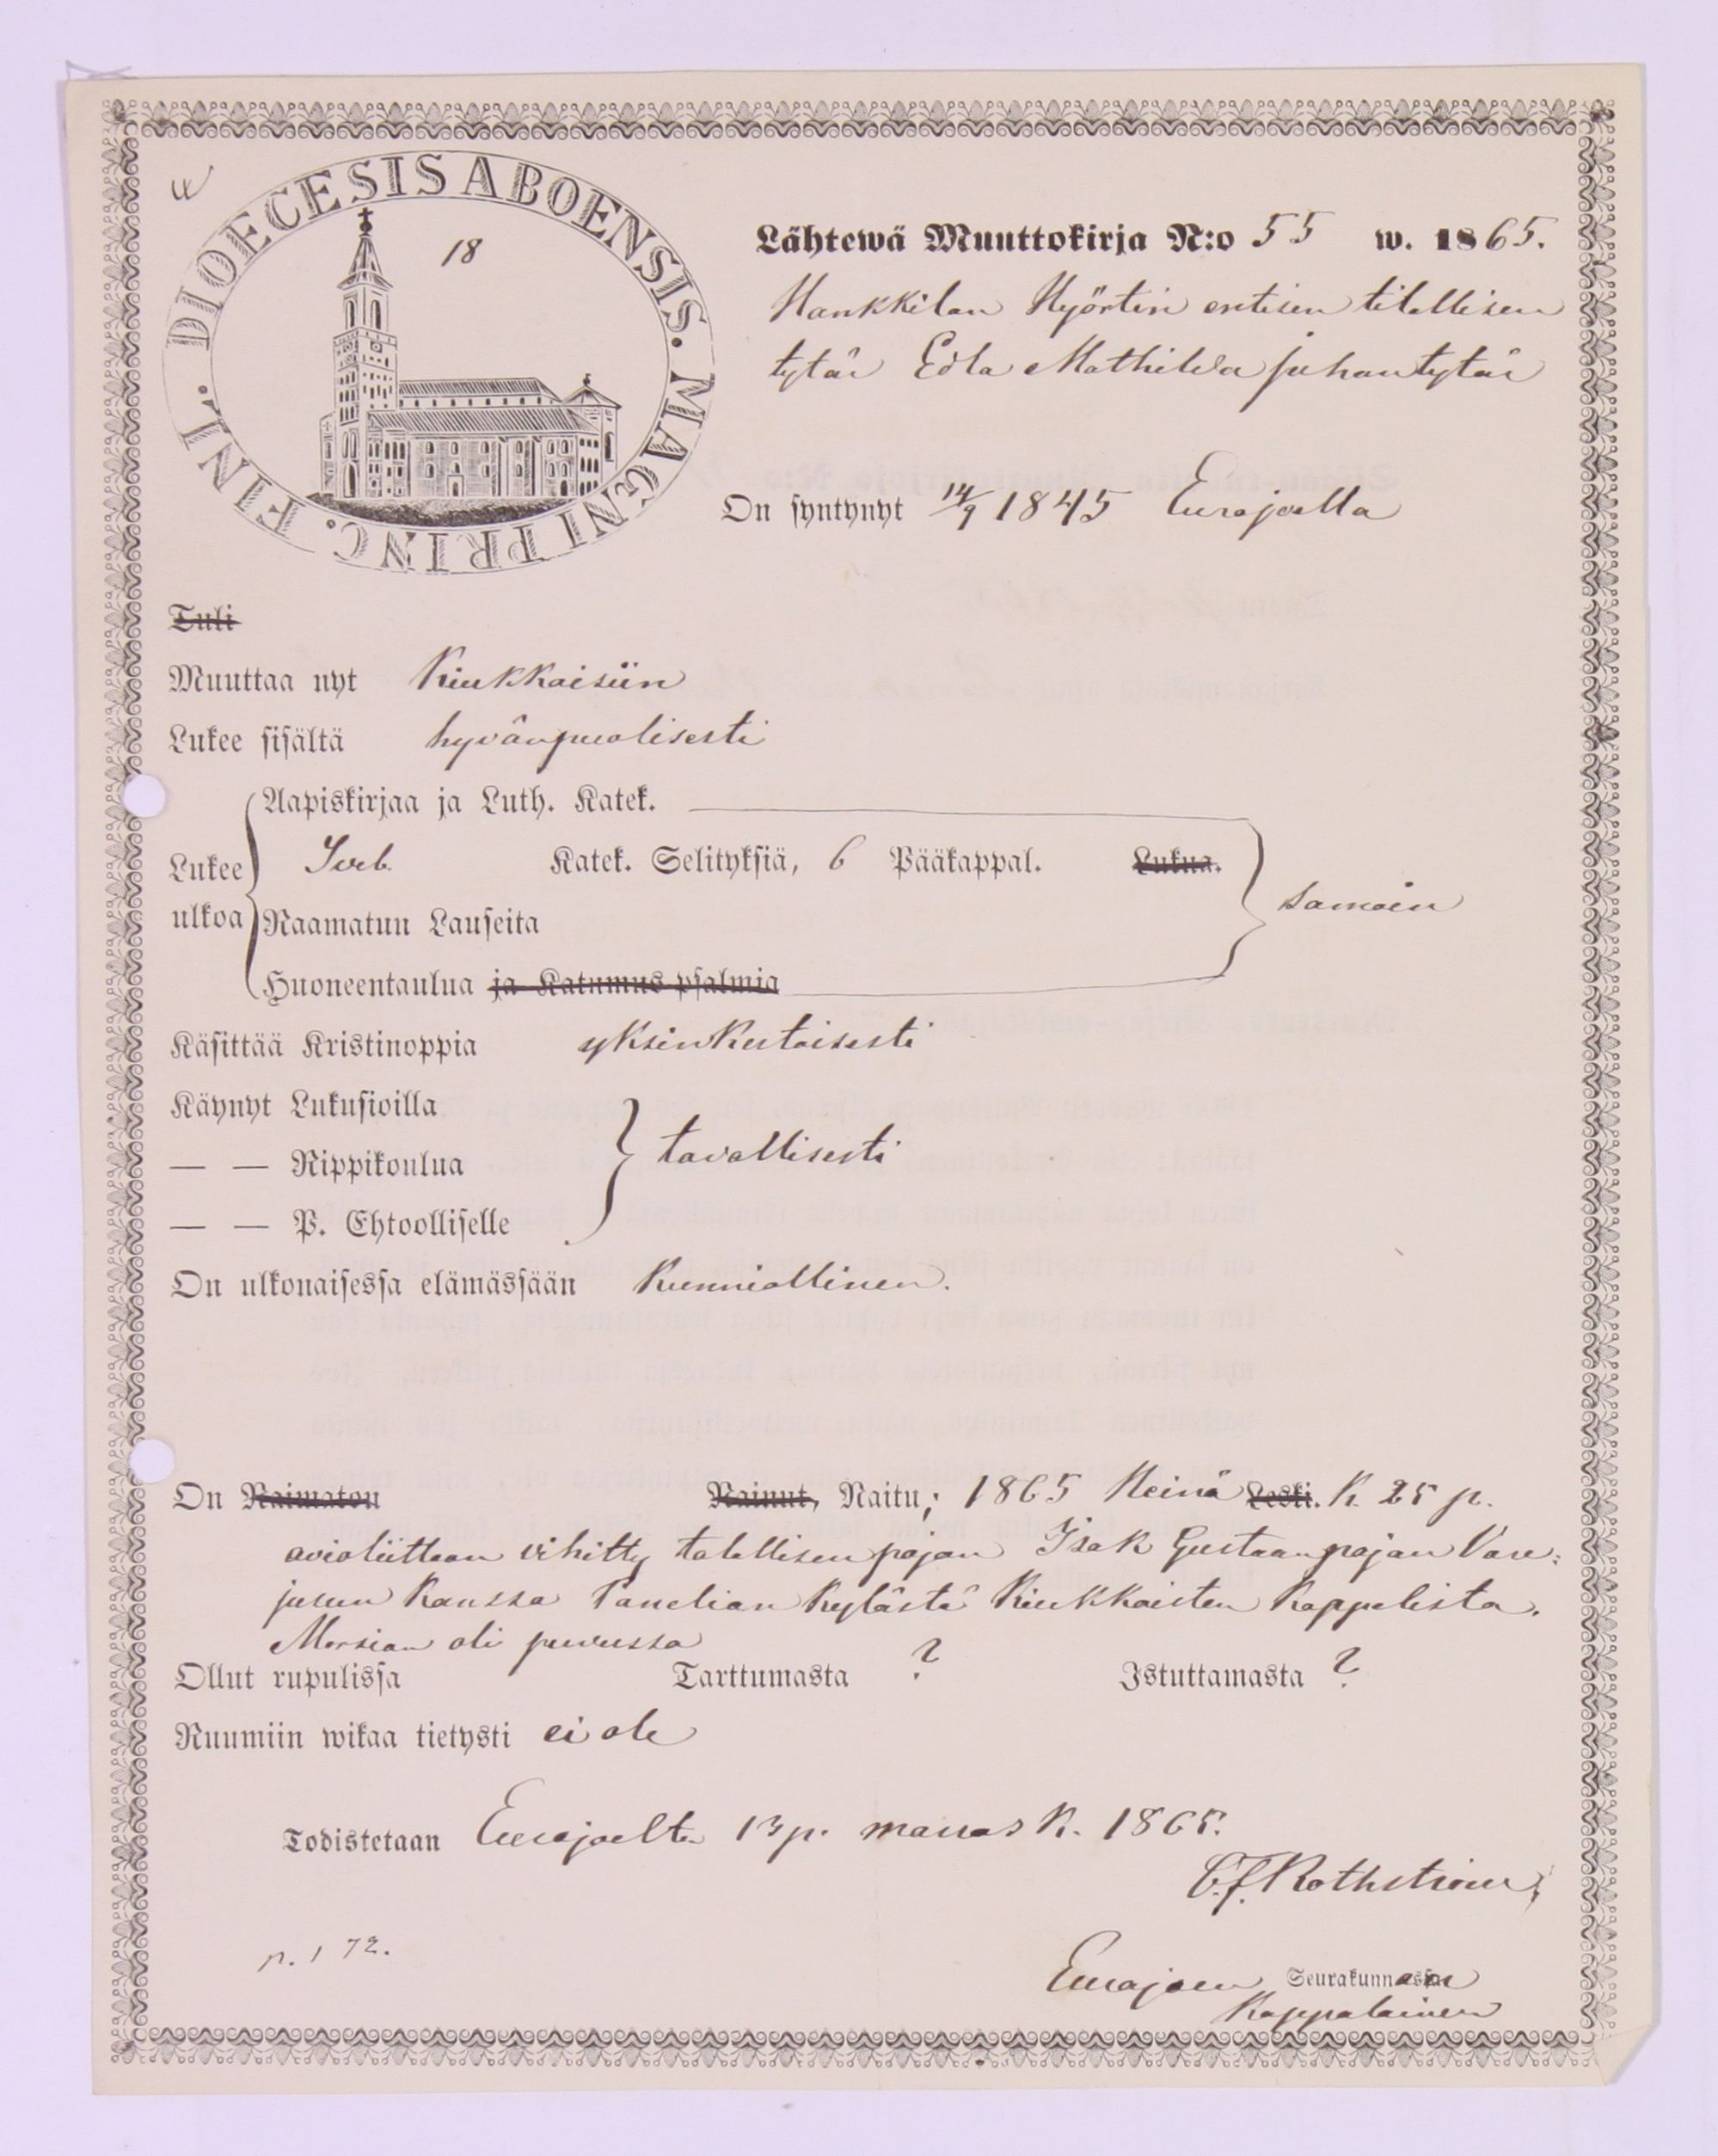 DIOECESIS ABOENSIS. MAGNI PRINC. FINL.
18
Lähtewä Muuttokirja N:o 55 w. 1865.
Hankkilan Hyörtin entisen tilallisen
tytär Edla Mathilda Juhantytär
On syntynyt 14/9 1845 Eurajoella
Tuli
Muuttaa nyt Kiukkaisiin
Lukee sisältä hyvänpuolisesti
Aapiskirjaa ja Luth. Katek.
Lukee Sveb. Katek. Selityksiä, 6 Pääkappal. Lukua.
samoin
ulkoa Raamatun Lauseita
Huoneentaulua ja Katumus-psalmia
Käsittää Kristinoppia yksinkertaisesti
Käynyt Lukusioilla
— — Rippikoulua tavallisesti
— — P. Ehtoolliselle
On ulkonaisessa elämässään Kunniallinen.
On Naimaton Nainut, Naitu; 1865 Heinä Leski. K. 25 p.
avioliittoon vihitty talollisen pojan Isak Gustaanpojan
kanssa Panelian Kylästä Kiukkaisten Kappelista.
Morsian oli puvussa
Ollut rupulissa Tarttumasta ? Istuttamasta ?
Ruumiin wikaa tietysti ei ole
Todistetaan Eurajoelta 13 p. marrask. 1865.
C. F. Rothström,
p. 172.
Eurajoen Seurakunnan
Kappalainen